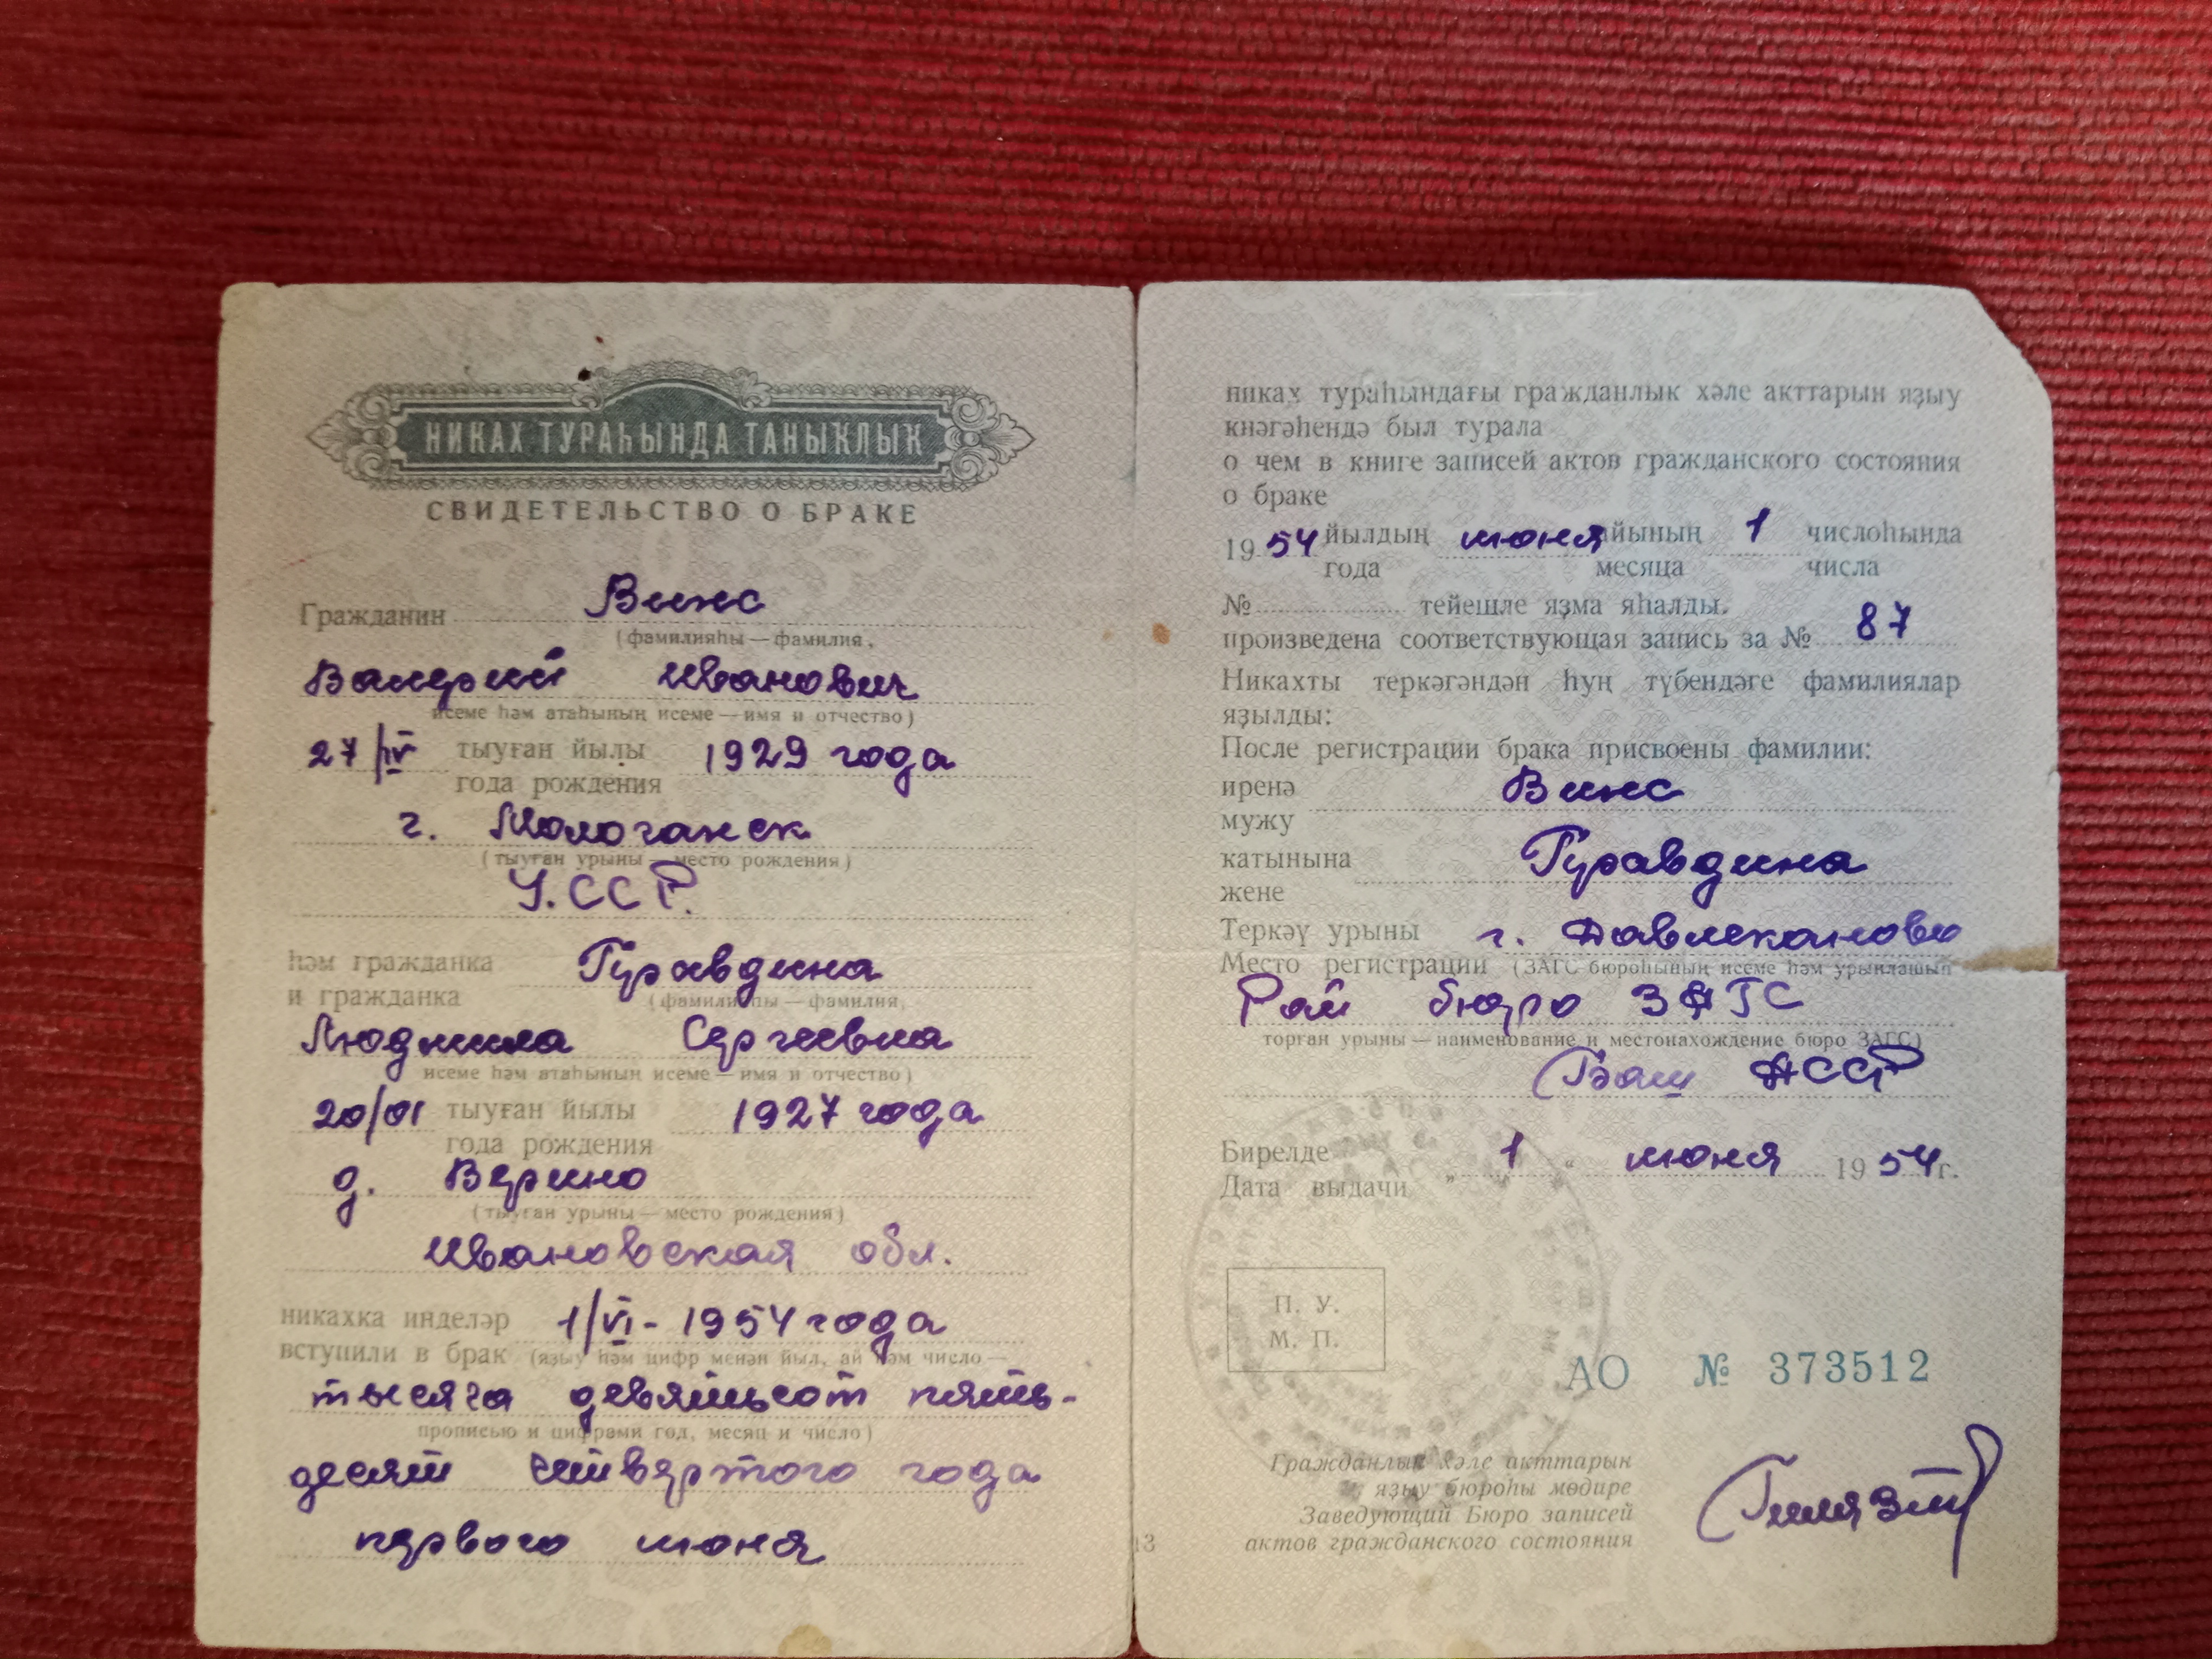 НИКАХ ТУРАҺЫНДА ТАНЫҠЛЫҠ
СВИДЕТЕЛЬСТВО О БРАКЕ
Гражданин Винс
(фамилияһы — фамилия,
Валерий Иванович
исеме һәм атаһының исеме — имя и отчество)
27/IV тыуған йылы 1929 года
года рождения
г. Мологанск
(тыуған урыны — место рождения)
У.ССР.
һәм гражданка Гуравдина
и гражданка (фамилияһы — фамилия,
Людмила Сергеевна
исеме һәм атаһының исеме — имя и отчество)
20/VI тыуған йылы 1927 года
года рождения
д. Верино
(тыуған урыны — место рождения)
Ивановская обл.
никахка инделәр 1/VI - 1954 года
вступили в брак (яҙыу һәм цифр менән йыл, ай һәм число —
тысяча девятьсот пять-
прописью и цифрами год, месяц и число)
десят четвертого года
первого июня
никах тураһындағы гражданлык хәле акттарын яҙыу
кнәгәһендә был турала
о чем в книге записей актов гражданского состояния
о браке
1954 йылдың июня айының 1 числоһында
года месяца числа
№ тейешле яҙма яһалды.
произведена соответствующая запись за № 87
Никахты теркәгәндән һуң түбендәге фамилиялар
яҙылды:
После регистрации брака присвоены фамилии:
иренә Винс
мужу
катынына Гуравдина
жене
Теркәү урыны г. Давлеканово
Место регистрации (ЗАГС бюроһының исеме һәм урынлашып
Рай бюро ЗАГС
торған урыны — наименование и местонахождение бюро ЗАГС)
Баш АССР
Бирелде
Дата выдачи „ 1 “ июня 1954 г.
П. У.
М. П.
АО № 373512
Гражданлык хәле акттарын
яҙыу бюроһы мөдире
Заведующий Бюро записей
актов гражданского состояния
13